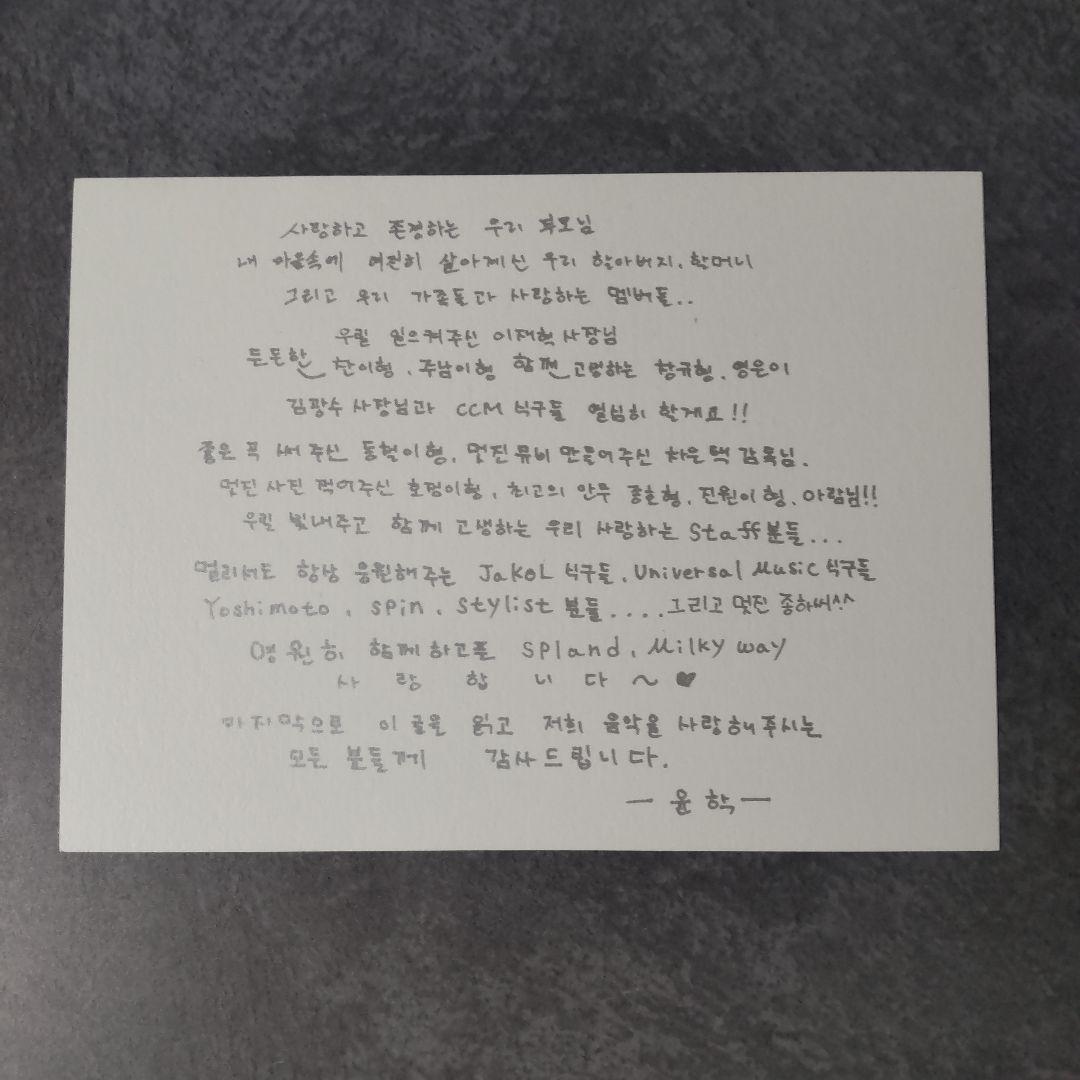 사랑하고 존경하는 우리 부모님
내 마음속에 여전히 살아계신 우리 할아버지, 할머니
그리고 우리 가족들과 사랑하는 멤버들..
우릴 일으켜주신 이재혁 사장님
든든한 찬이형, 주남이형 함께 고생하는 창규형, 영은이
김광수 사장님과 CCM 식구들 열심히 할게요!!
좋은 곡 써 주신 동철이형, 멋진 뮤비 만들어주신 차은택 감독님.
멋진 사진 찍어주신 호겸이형, 최고의 안무 종호형, 진원이형, 아람님!!
우릴 빛내주고 함께 고생하는 우리 사랑하는 Staff분들...
멀리서도 항상 응원해주는 JaKOL 식구들, Universal Music 식구들
Yoshimoto, SPin, Stylist 분들....그리고 멋진 종하씨^^
영원히 함께하고픈 SPland, Milky way
사 랑 합 니 다 ~ ♥
마지막으로 이 글을 읽고 저희 음악을 사랑해주시는
모든 분들께 감사드립니다.
— 윤학 —